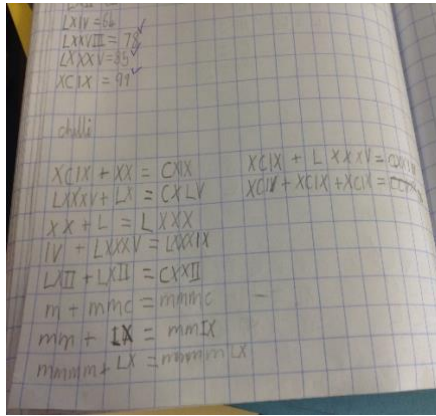 LXIV = 66
LXXVIII = 78
LXXXV = 85
XCIX = 99
chilli
XCIX + XX = CXIX
LXXXV + LX = CXLV
XX + L = LXXX
IV + LXXXV = LXXXIX
LXII + LXII = CXXII
m + mmc = mmmc
mm + IX = mmIX
mmmm + LX = mmmm LX
XCIX + LXXXV =
XCIV + XCIX + XCIX =